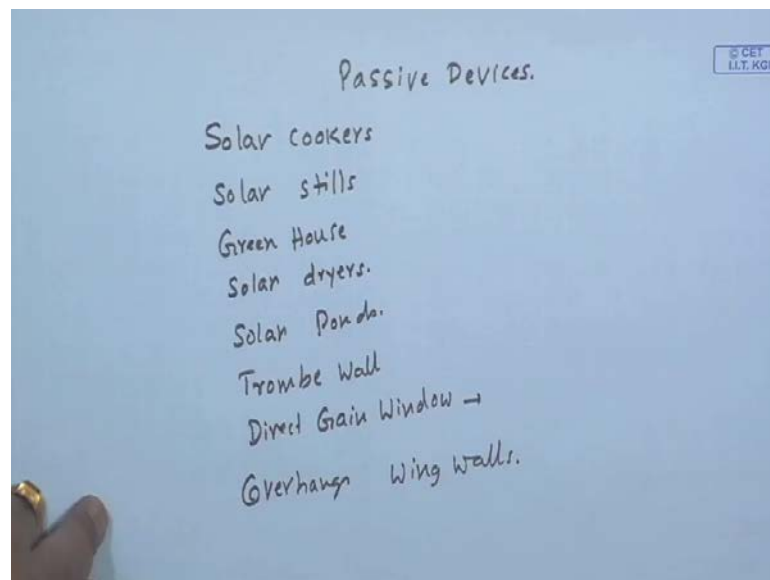 Passive Devices.
© CET
I.I.T. KGP
Solar cookers
Solar stills
Green House
Solar dryers.
Solar Ponds.
Trombe Wall
Direct Gain Window →
Overhangs Wing Walls.